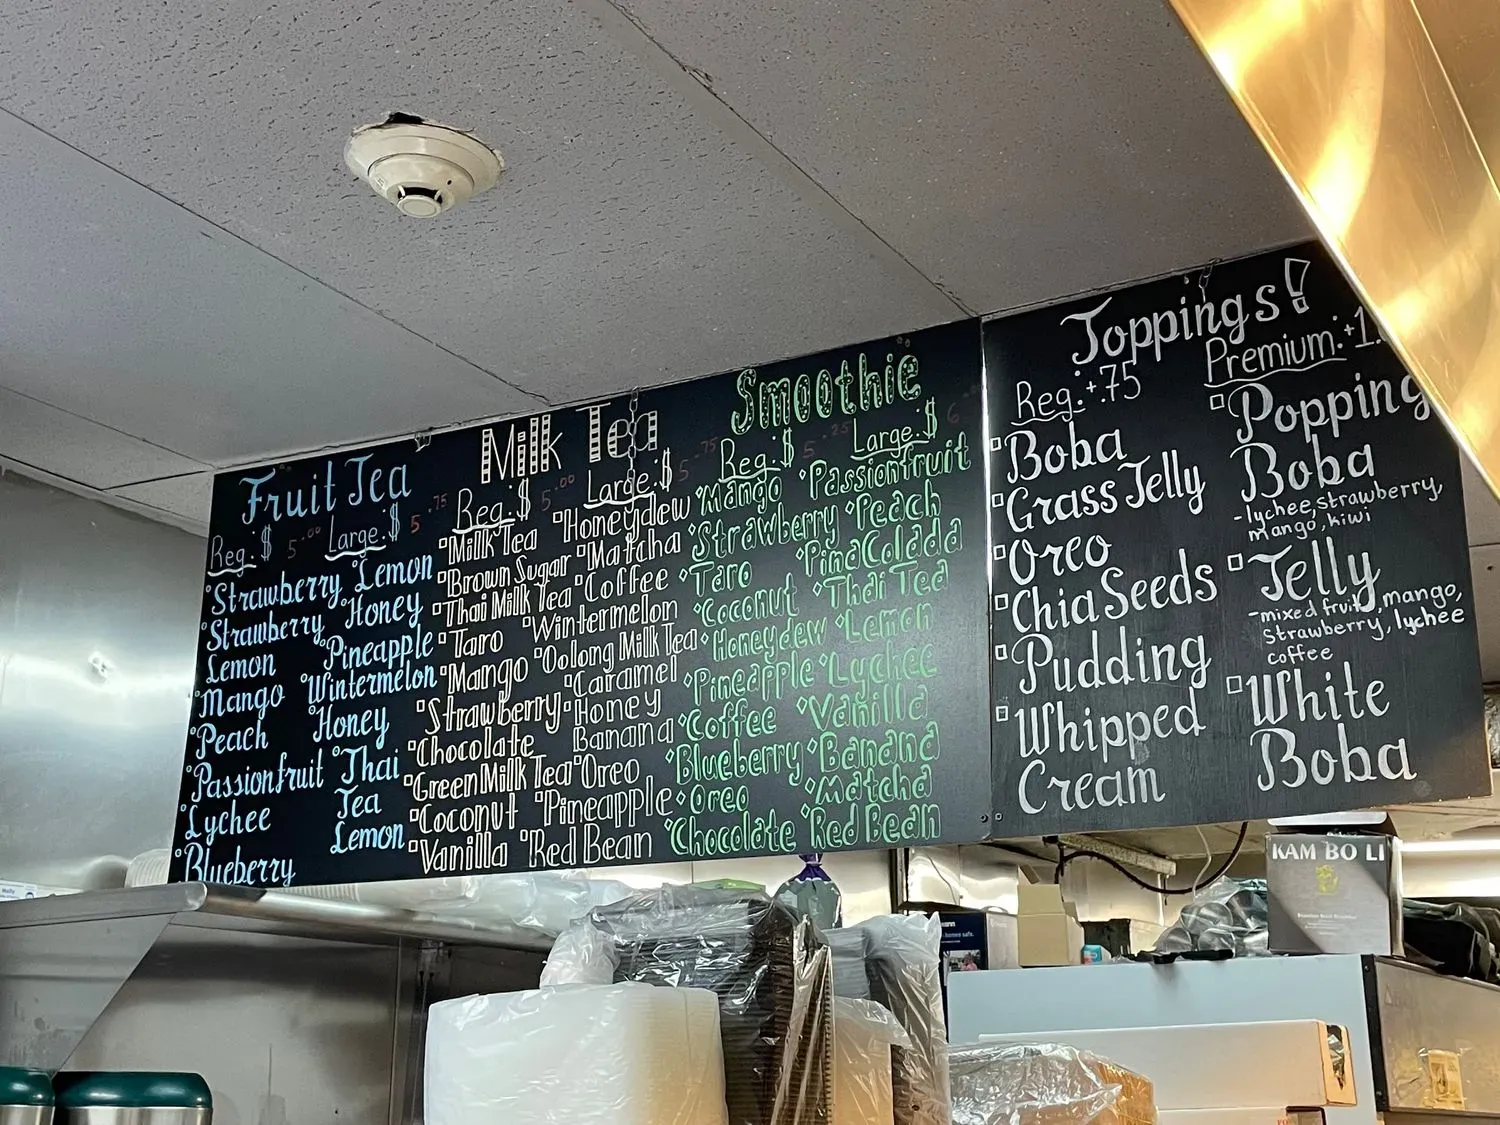 Fruit Tea
Reg: $ 5.00 Large: $ 5.75
°Strawberry
°Strawberry
Lemon
°Mango
°Peach
°Passionfruit
°Lychee
°Blueberry
°Lemon
°Honey
Pineapple
°Wintermelon
Honey
°Thai
Tea
Lemon
Milk Tea
Reg: $ 5.00 Large: $ 5.75
Milk Tea
Brown Sugar
Thai Milk Tea
Taro
Mango
Strawberry
Chocolate
Green Milk Tea
Coconut
Vanilla
Honeydew
Matcha
Coffee
Wintermelon
Oolong Milk Tea
Caramel
Honey
Banana
Oreo
Pineapple
Red Bean
Smoothie
Reg: $ 5.25 Large: $ 6
Mango
Strawberry
Taro
Coconut
Honeydew
Pineapple
Coffee
Blueberry
Oreo
Chocolate
Passionfruit
Peach
Pina Colada
Thai Tea
Lemon
Lychee
Vanilla
Banana
Matcha
Red Bean
Toppings!
Reg: +.75
Boba
Grass Jelly
Oreo
Chia Seeds
Pudding
Whipped
Cream
Premium: +1.
Popping
Boba
-lychee, strawberry,
mango, kiwi
Jelly
-mixed fruit, mango,
strawberry, lychee
coffee
White
Boba
KAM BO LI